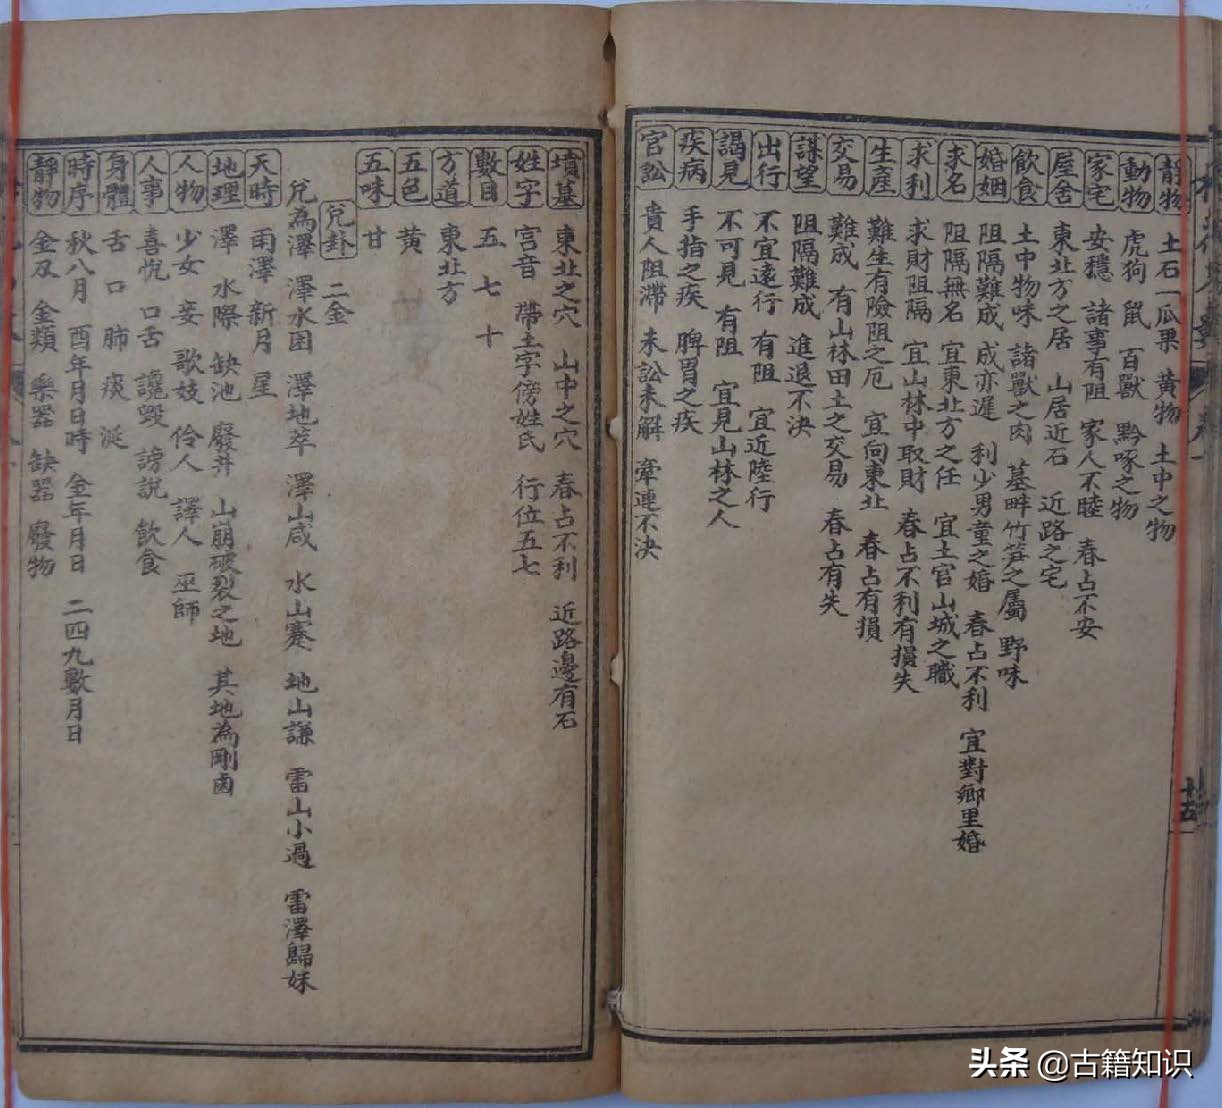 靜物 土石 瓜果 黃物 土中之物
動物 虎狗 鼠 百獸 黔啄之物
家宅 安穩 諸事有阻 家人不睦 春占不安
屋舍 東北方之居 山居近石 近路之宅
飲食 土中物味 諸獸之肉 墓畔竹笋之屬 野味
婚姻 阻隔難成 成亦遲 利少男童之婚 春占不利 宜對鄉里婚
求名 阻隔無名 宜東北方之任 宜土官山城之職
求利 求財阻隔 宜山林中取財 春占不利有損失
生產 難生有險阻之厄 宜向東北 春占有損
交易 難成 有山林田土之交易 春占有失
謀望 阻隔難成 進退不決
出行 不宜遠行 有阻 宜近陸行
謁見 不可見 有阻 宜見山林之人
疾病 手指之疾 脾胃之疾
官訟 貴人阻滯 未訟未解 牽連不決
十五
墳墓 東北之穴 山中之穴 春占不利 近路邊有石
姓字 宮音 帶土字傍姓氏 行位五七
數目 五 七 十
方道 東北方
五色 黃
五味 甘
兌卦 二金
兌為澤 澤水困 澤地萃 澤山咸 水山蹇 地山謙 雷山小過 雷澤歸妹
天時 雨澤 新月 星
地理 澤 水際 缺池 廢井 山崩破裂之地 其地為剛鹵
人物 少女 妾 歌妓 伶人 譯人 巫師
人事 喜悅 口舌 讒毀 謗說 飲食
身體 舌 口 肺 痰 涎
時序 秋八月 酉年月日時 金年月日 二四九數月日
靜物 金刃 金類 樂器 缺器 廢物
头条 @古籍知识